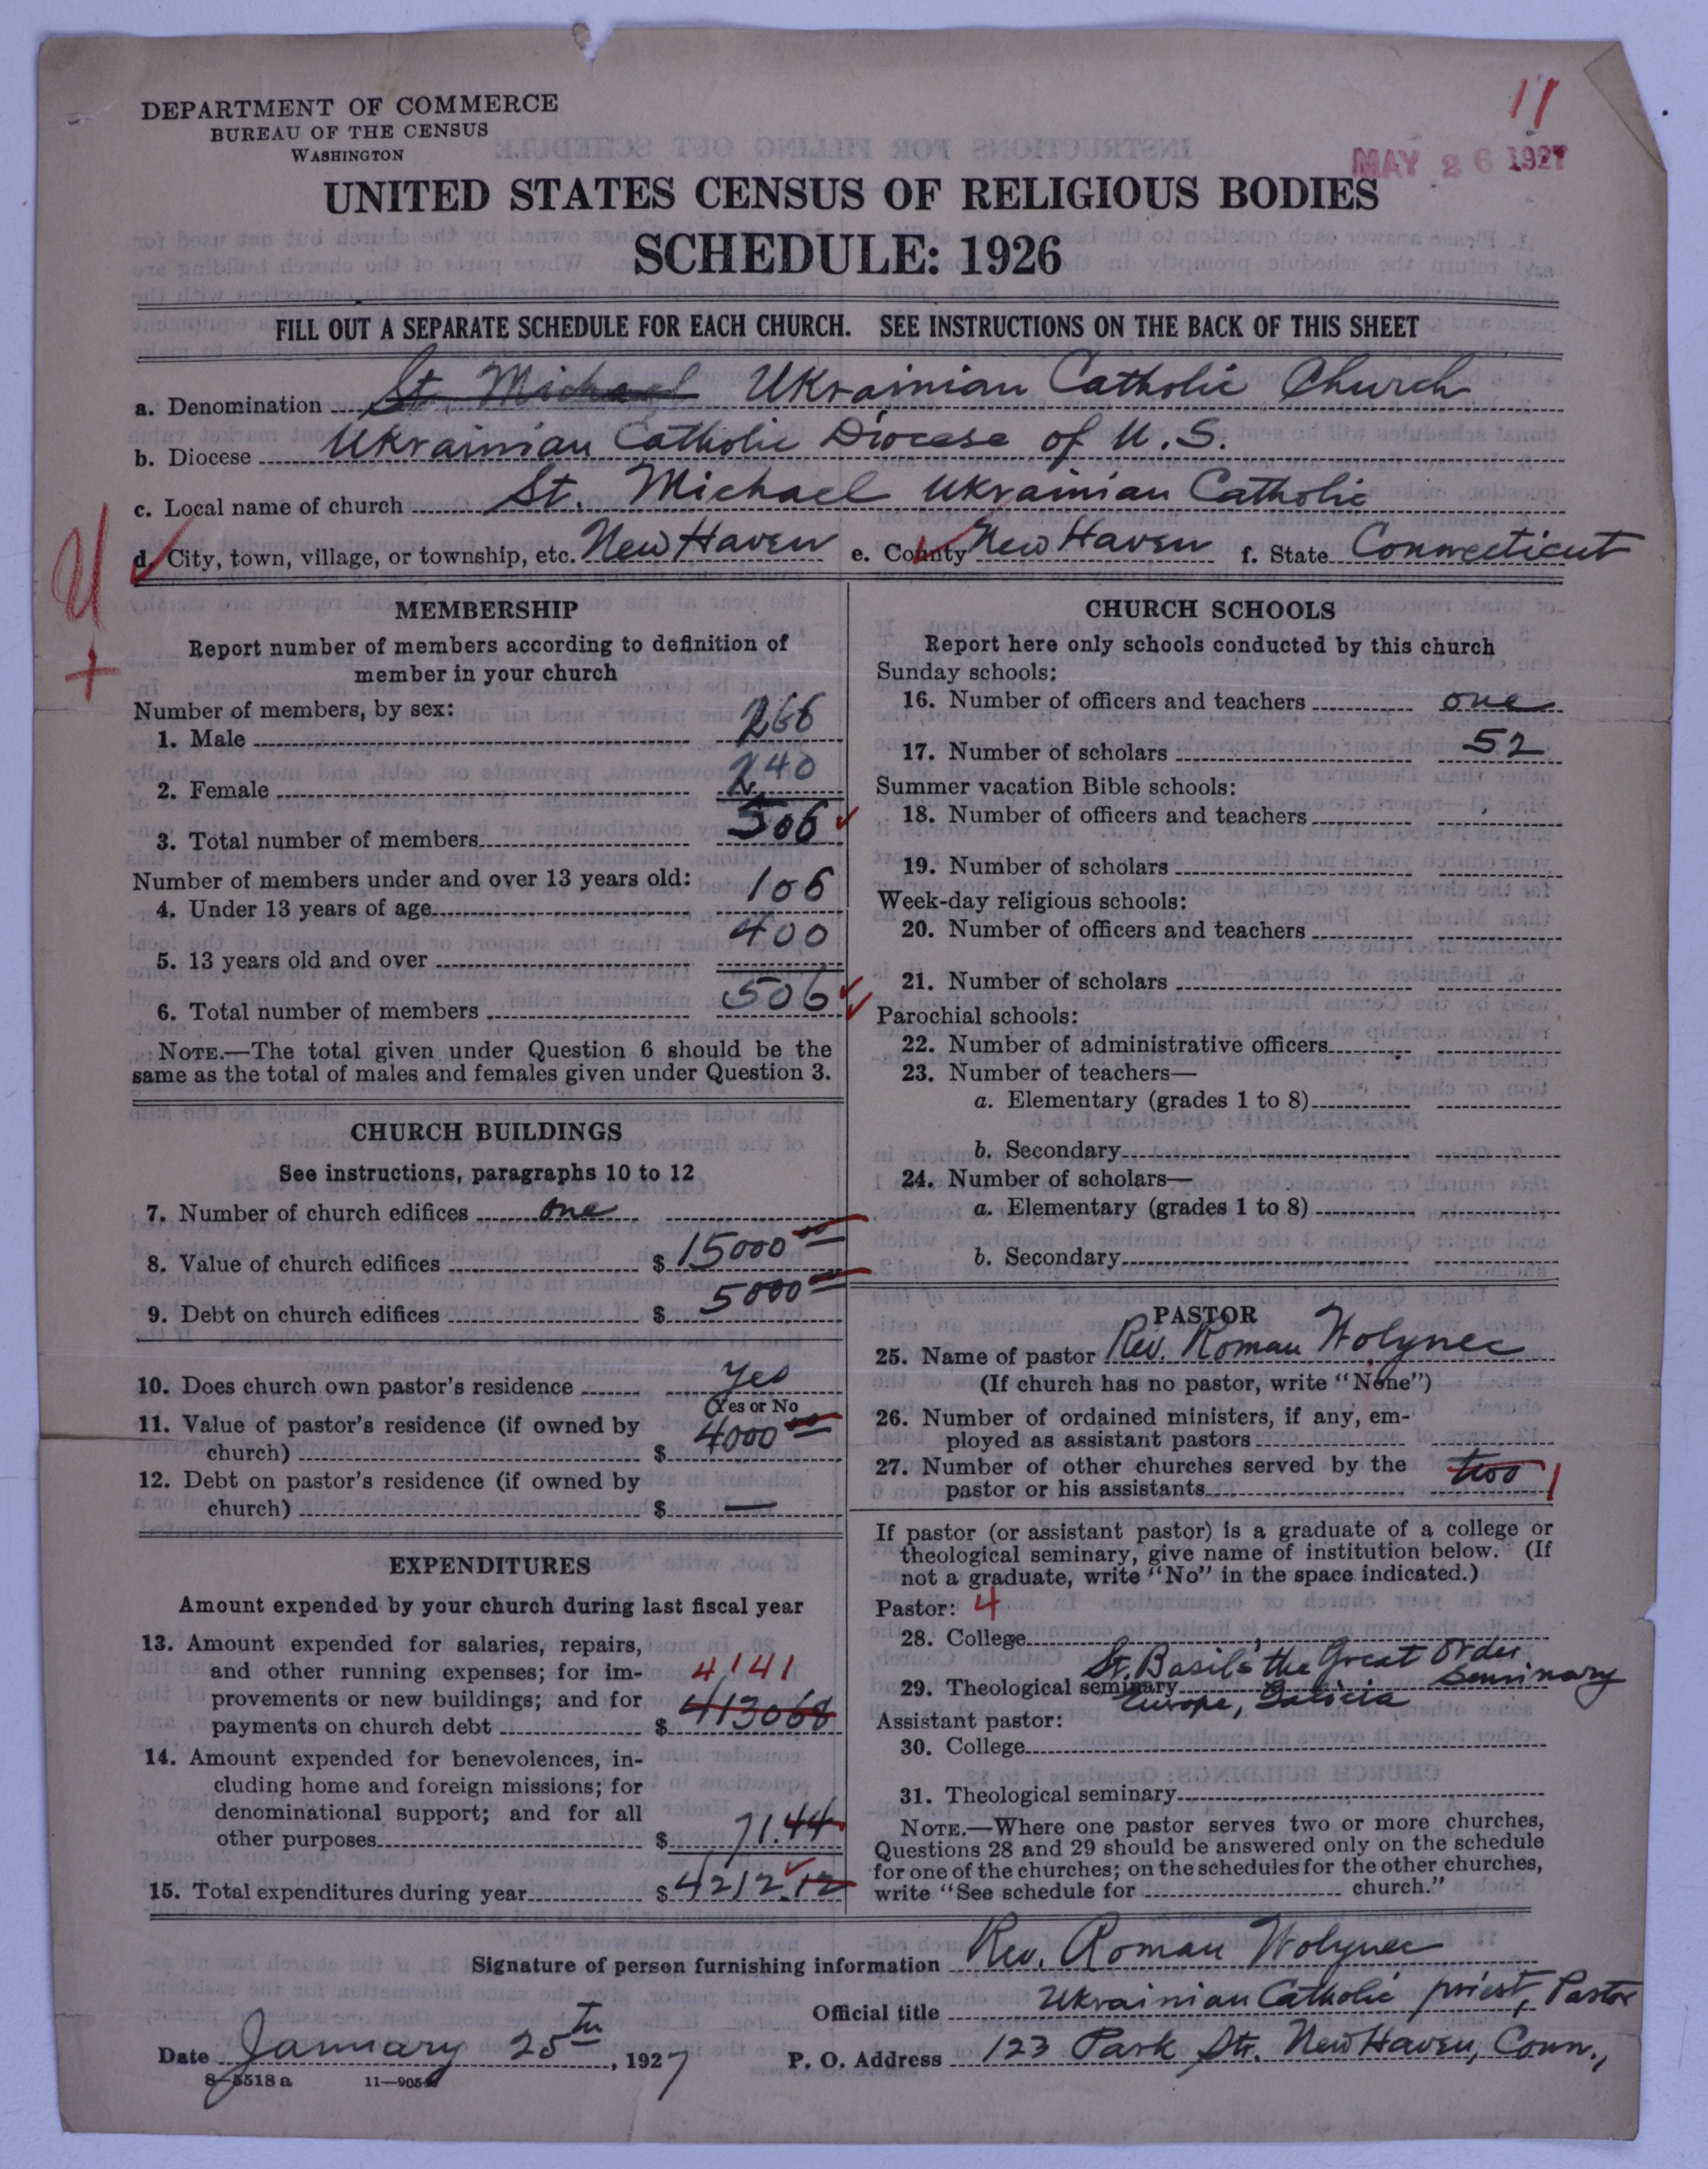 DEPARTMENT OF COMMERCE
BUREAU OF THE CENSUS
WASHINGTON
11
MAY 26 1927
UNITED STATES CENSUS OF RELIGIOUS BODIES
SCHEDULE: 1926
FILL OUT A SEPARATE SCHEDULE FOR EACH CHURCH. SEE INSTRUCTIONS ON THE BACK OF THIS SHEET
a. Denomination St. Michael Ukrainian Catholic Church
b. Diocese Ukrainian Catholic Diocese of U.S.
c. Local name of church St. Michael Ukrainian Catholic
d. City, town, village, or township, etc. New Haven e. County New Haven f. State Connecticut
MEMBERSHIP
Report number of members according to definition of
member in your church
Number of members, by sex:
1. Male 266
2. Female 240
3. Total number of members 506
Number of members under and over 13 years old:
4. Under 13 years of age 106
5. 13 years old and over 400
6. Total number of members 506
NOTE.—The total given under Question 6 should be the
same as the total of males and females given under Question 3.
CHURCH BUILDINGS
See instructions, paragraphs 10 to 12
7. Number of church edifices one
8. Value of church edifices $ 15000 00
9. Debt on church edifices $ 5000 00
10. Does church own pastor's residence yes
(Yes or No
11. Value of pastor's residence (if owned by
church) $ 4000 00
12. Debt on pastor's residence (if owned by
church) $ —
EXPENDITURES
Amount expended by your church during last fiscal year
13. Amount expended for salaries, repairs,
and other running expenses; for im-
4141
provements or new buildings; and for
payments on church debt $ 413068
14. Amount expended for benevolences, in-
cluding home and foreign missions; for
denominational support; and for all
other purposes $ 71.44
15. Total expenditures during year $ 4212.12
CHURCH SCHOOLS
Report here only schools conducted by this church
Sunday schools:
16. Number of officers and teachers one
17. Number of scholars 52
Summer vacation Bible schools:
18. Number of officers and teachers
19. Number of scholars
Week-day religious schools:
20. Number of officers and teachers
21. Number of scholars
Parochial schools:
22. Number of administrative officers
23. Number of teachers—
a. Elementary (grades 1 to 8)
b. Secondary
24. Number of scholars—
a. Elementary (grades 1 to 8)
b. Secondary
PASTOR
25. Name of pastor Rev. Roman Wolynec
(If church has no pastor, write "None")
26. Number of ordained ministers, if any, em-
ployed as assistant pastors
27. Number of other churches served by the two 1
pastor or his assistants
If pastor (or assistant pastor) is a graduate of a college or
theological seminary, give name of institution below. (If
not a graduate, write "No" in the space indicated.)
Pastor: 4
28. College
St. Basil's the Great Order
29. Theological seminary Seminary
Europe, Galicia
Assistant pastor:
30. College
31. Theological seminary
NOTE.—Where one pastor serves two or more churches,
Questions 28 and 29 should be answered only on the schedule
for one of the churches; on the schedules for the other churches,
write "See schedule for church."
Signature of person furnishing information Rev. Roman Wolynec
Official title Ukrainian Catholic priest, Pastor
Date January 25th, 1927 P. O. Address 123 Park Str. New Haven, Conn.,
8-5518 a 11—905